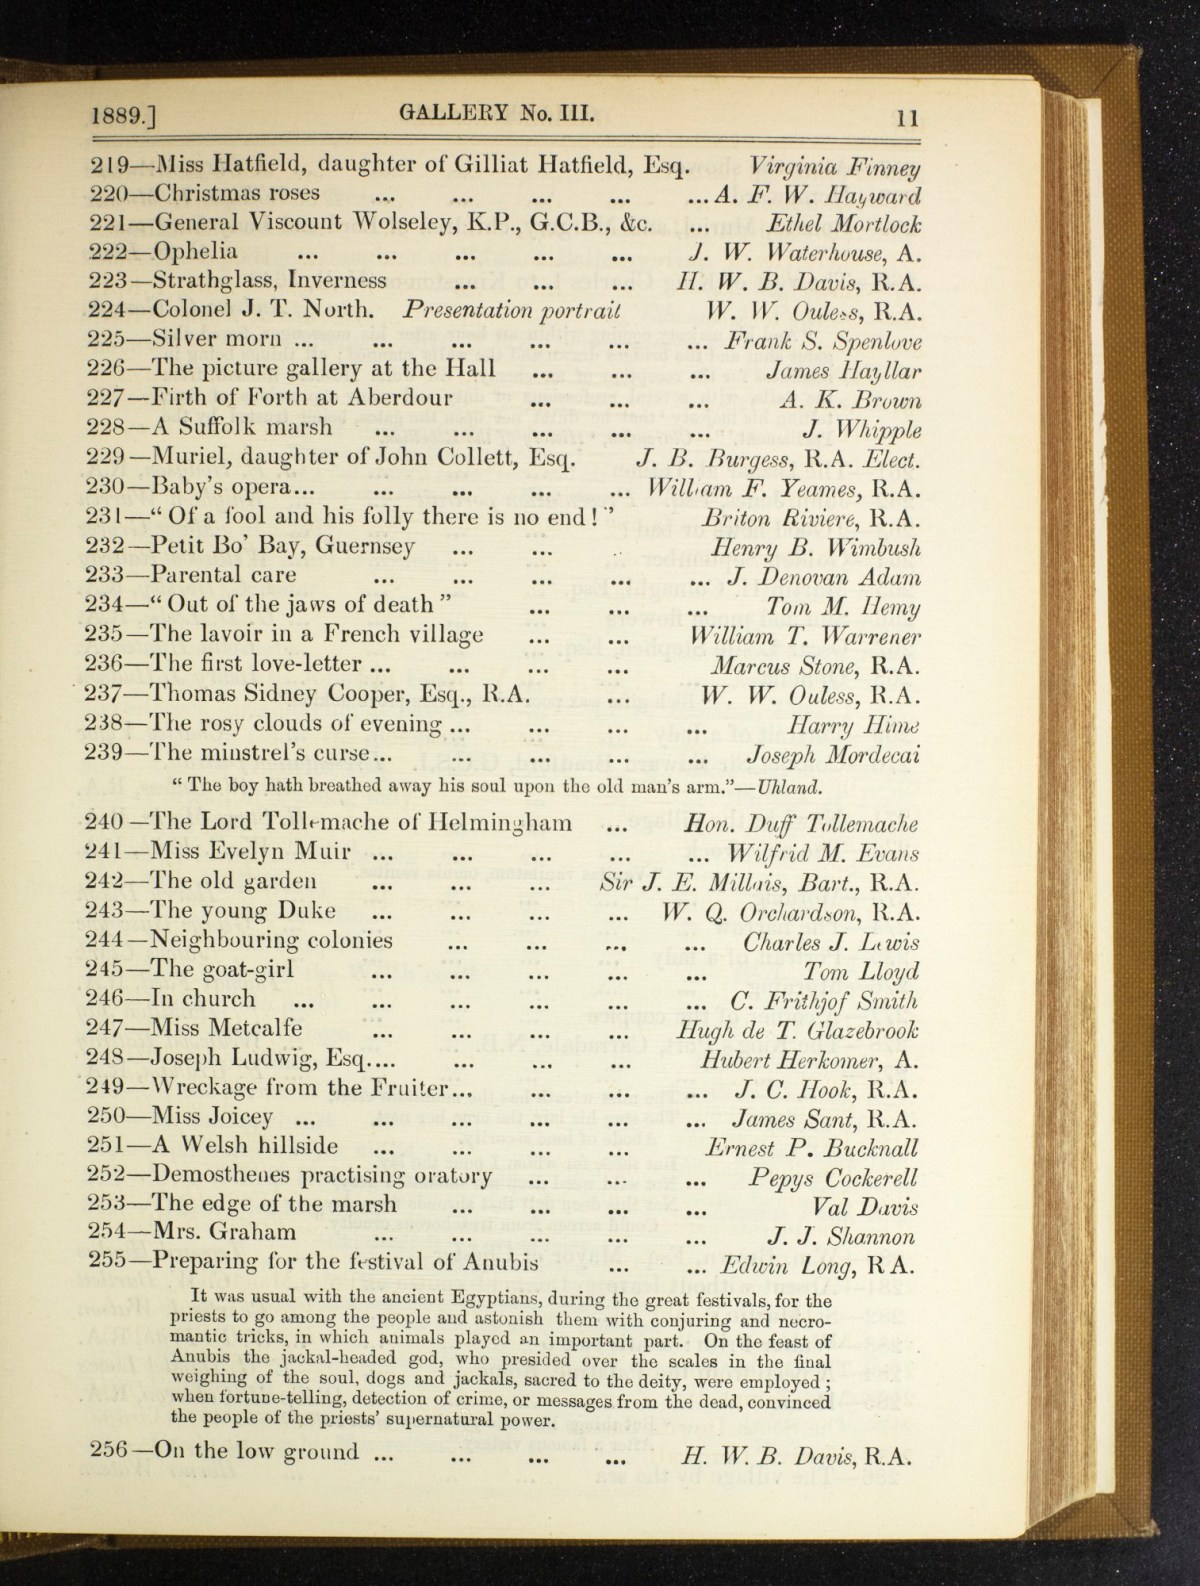 1889.] GALLERY No. III. 11
219—Miss Hatfield, daughter of Gilliat Hatfield, Esq. Virginia Finney
220—Christmas roses ... ... ... ... ... A. F. W. Hayward
221—General Viscount Wolseley, K.P., G.C.B., &c. ... Ethel Mortlock
222—Ophelia ... ... ... ... ... J. W. Waterhouse, A.
223—Strathglass, Inverness ... ... ... H. W. B. Davis, R.A.
224—Colonel J. T. North. Presentation portrait W. W. Ouless, R.A.
225—Silver morn ... ... ... ... ... ... Frank S. Spenlove
226—The picture gallery at the Hall ... ... ... James Hayllar
227—Firth of Forth at Aberdour ... ... ... A. K. Brown
228—A Suffolk marsh ... ... ... ... ... J. Whipple
229—Muriel, daughter of John Collett, Esq. J. B. Burgess, R.A. Elect.
230—Baby's opera... ... ... ... ... William F. Yeames, R.A.
231—“ Of a fool and his folly there is no end!” Briton Riviere, R.A.
232—Petit Bo' Bay, Guernsey ... ... . Henry B. Wimbush
233—Parental care ... ... ... ... ... J. Denovan Adam
234—“ Out of the jaws of death ” ... ... ... Tom M. Hemy
235—The lavoir in a French village ... ... William T. Warrener
236—The first love-letter ... ... ... ... Marcus Stone, R.A.
237—Thomas Sidney Cooper, Esq., R.A. ... W. W. Ouless, R.A.
238—The rosy clouds of evening ... ... ... ... Harry Hime
239—The minstrel's curse... ... ... ... ... Joseph Mordecai
“ The boy hath breathed away his soul upon the old man's arm.”—Uhland.
240—The Lord Tollemache of Helmingham ... Hon. Duff Tollemache
241—Miss Evelyn Muir ... ... ... ... ... Wilfrid M. Evans
242—The old garden ... ... ... Sir J. E. Millais, Bart., R.A.
243—The young Duke ... ... ... ... W. Q. Orchardson, R.A.
244—Neighbouring colonies ... ... ... ... Charles J. Lewis
245—The goat-girl ... ... ... ... ... Tom Lloyd
246—In church ... ... ... ... ... ... C. Frithjof Smith
247—Miss Metcalfe ... ... ... ... Hugh de T. Glazebrook
248—Joseph Ludwig, Esq.... ... ... ... Hubert Herkomer, A.
249—Wreckage from the Fruiter... ... ... ... J. C. Hook, R.A.
250—Miss Joicey ... ... ... ... ... ... James Sant, R.A.
251—A Welsh hillside ... ... ... ... Ernest P. Bucknall
252—Demosthenes practising oratory ... ... ... Pepys Cockerell
253—The edge of the marsh ... ... ... ... Val Davis
254—Mrs. Graham ... ... ... ... ... J. J. Shannon
255—Preparing for the festival of Anubis ... ... Edwin Long, R A.
It was usual with the ancient Egyptians, during the great festivals, for the
priests to go among the people and astonish them with conjuring and necro-
mantic tricks, in which animals played an important part. On the feast of
Anubis the jackal-headed god, who presided over the scales in the final
weighing of the soul, dogs and jackals, sacred to the deity, were employed ;
when fortune-telling, detection of crime, or messages from the dead, convinced
the people of the priests' supernatural power.
256—On the low ground ... ... ... ... H. W. B. Davis, R.A.